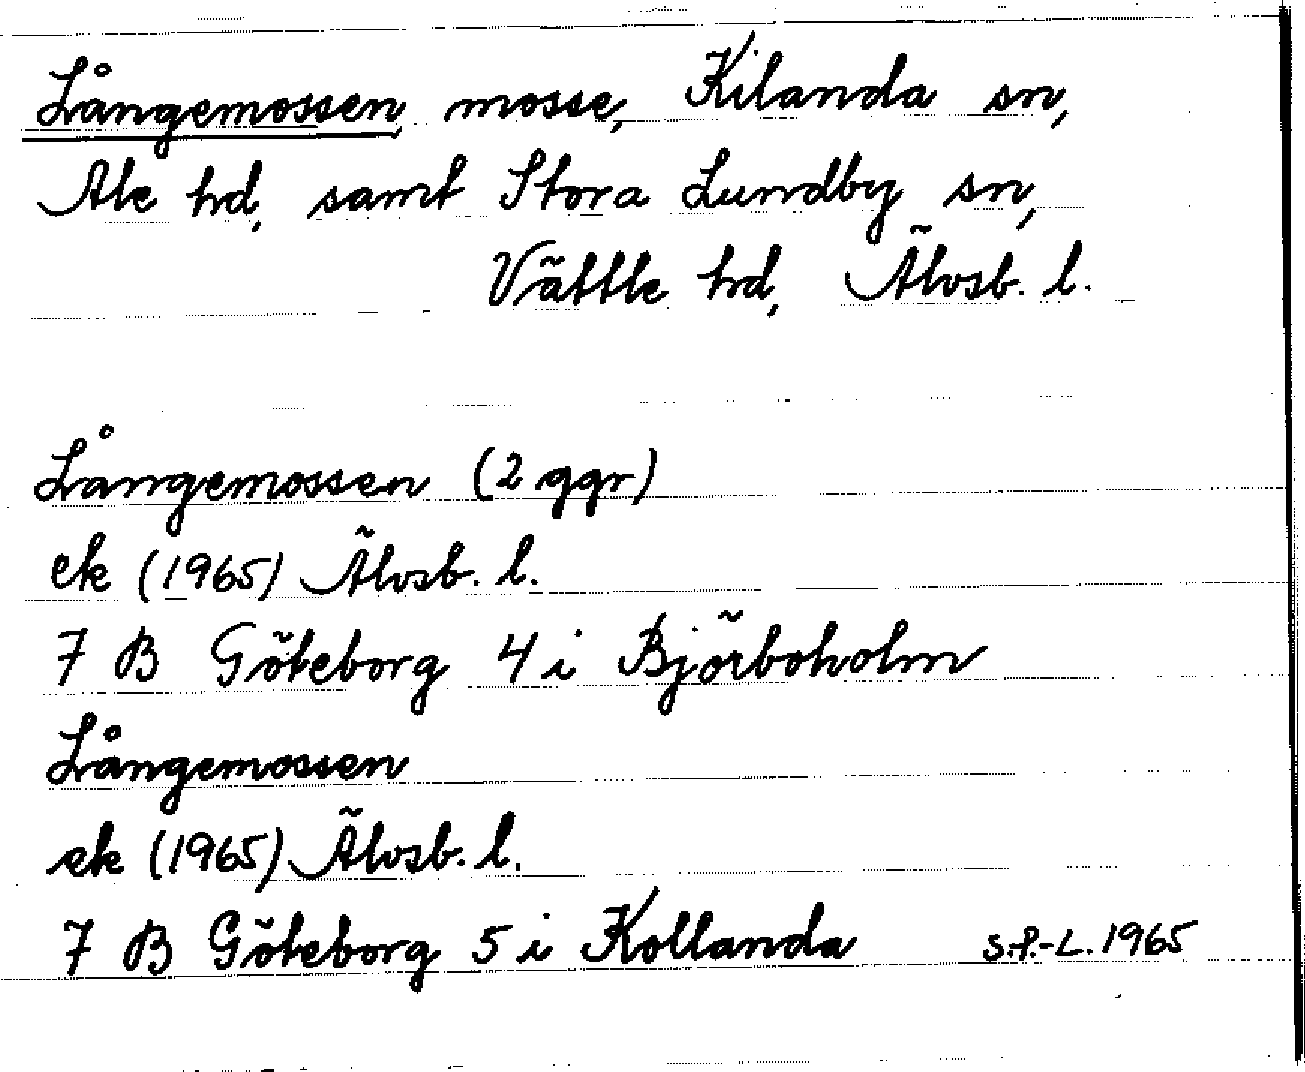 Långemossen, mosse, Kilanda sn,
Ale hd, samt Stora Lundby sn,
Vättle hd, Älvsb. l.
Långemossen (2 ggr)
ek (1965) Älvsb. l.
7 B Göteborg 4 i Björboholm
Långemossen
ek (1965) Älvsb. l.
7 B Göteborg 5 i Kollanda S.P.-L. 1965